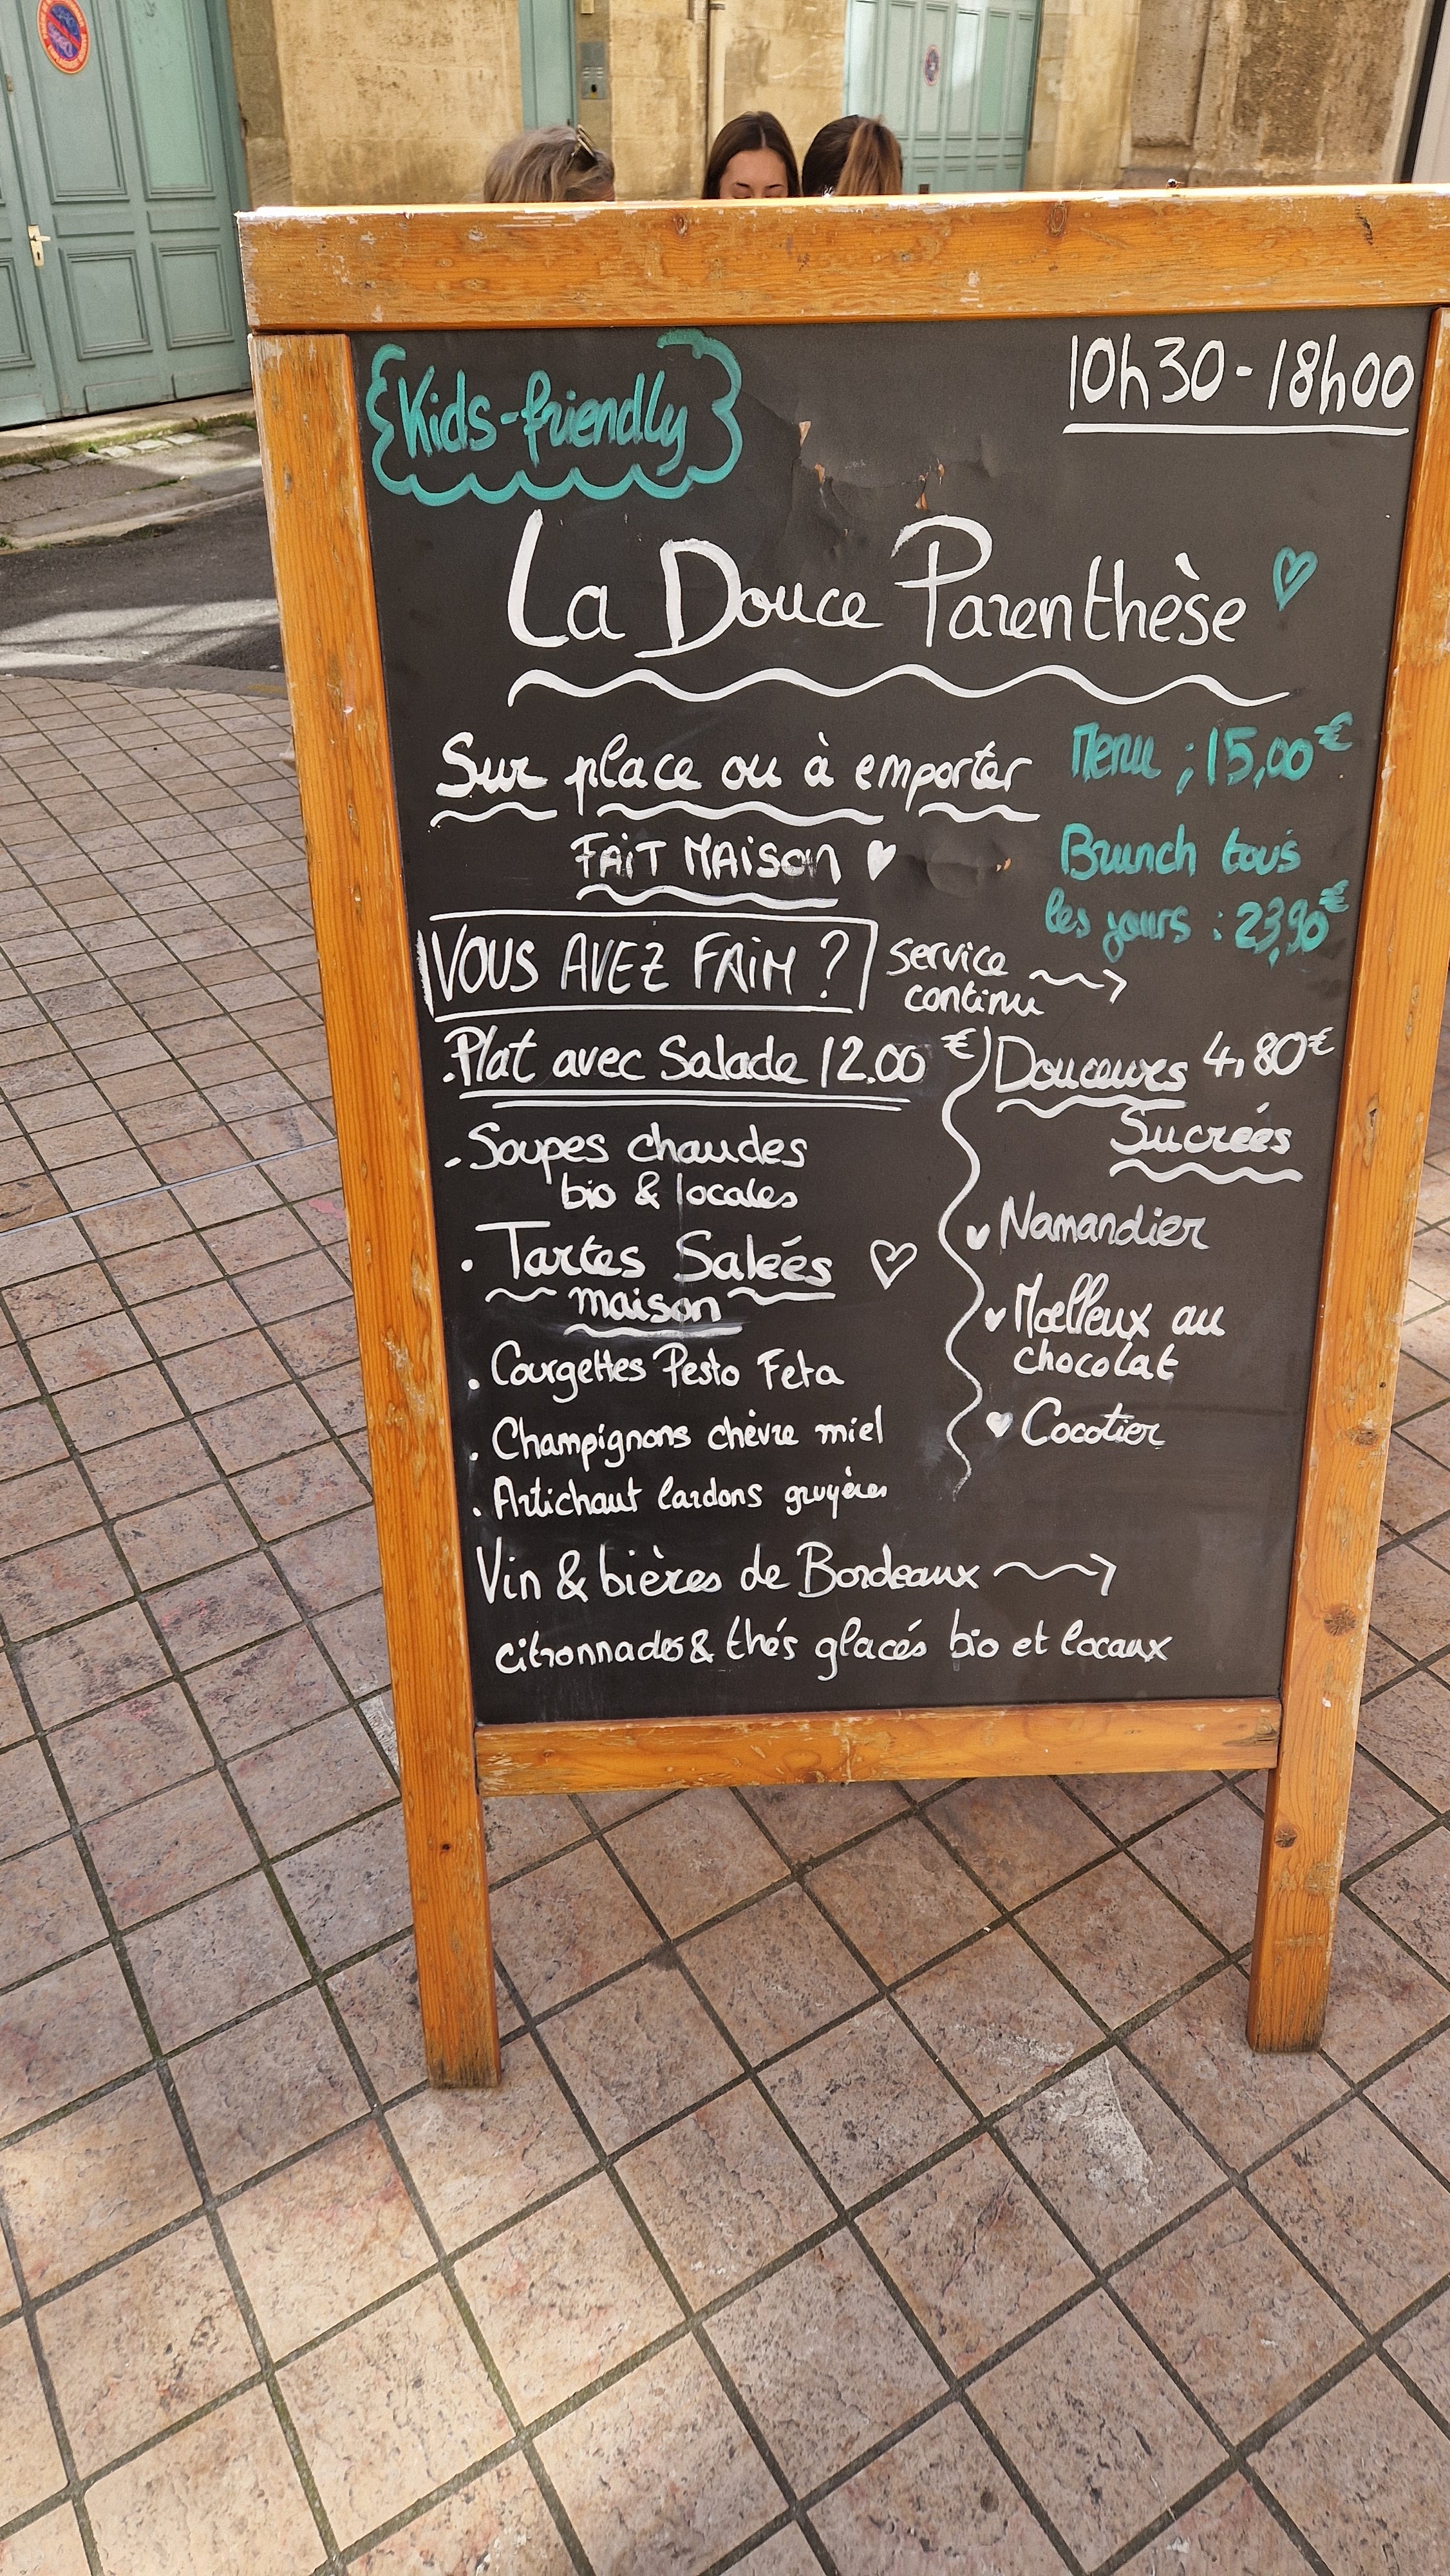 Kids-friendly
10h30-18h00
La Douce Parenthèse
Sur place ou à emporter
Menu ; 15,00€
FAiT MAiSon
Brunch tous
les jours : 23,90€
VOUS AVEZ FAiM ?
service
continu
.Plat avec Salade 12.00 €
Douceurs 4,80€
Sucrées
.Soupes chaudes
bio & locales
. Tartes Saleés
maison
. Courgettes Pesto Feta
. Champignons chèvre miel
. Artichaut lardons gruyères
Namandier
Moelleux au
chocolat
Cocotier
Vin & bières de Bordeaux
citronnades & thés glacés bio et locaux